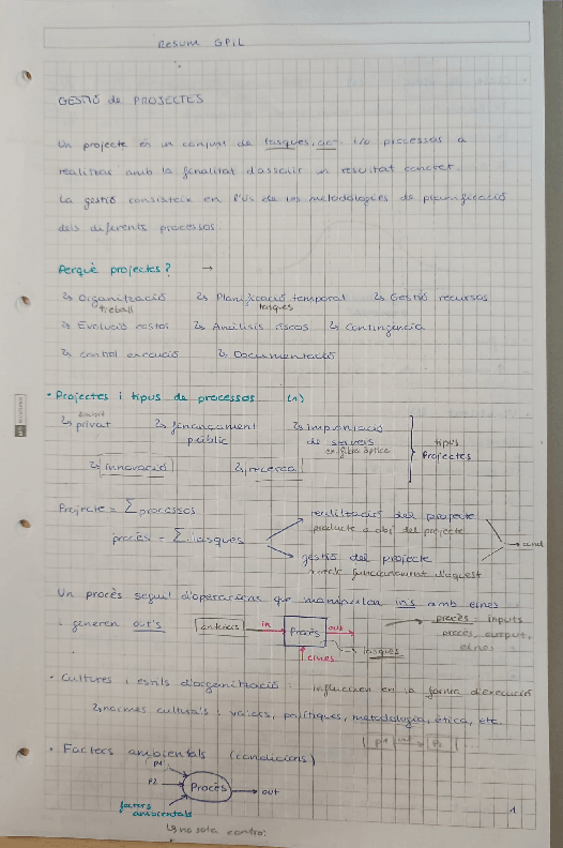 Resum GPiL
GESTIÓ de PROJECTES
Un projecte és un conjunt de tasques, i/o processos a
realitzar amb la finalitat d'assolir un resultat concret.
La gestió consisteix en l'ús de les metodologies de planificació
dels diferents processos.
Perquè projectes? →
↳ Organització treball ↳ Planificació temporal tasques ↳ Gestió recursos
↳ Evolució costos ↳ Anàlisis riscos ↳ Contingència
↳ control execució ↳ Documentació
• Projectes i tipus de processos (1)
↳ privat ↳ finançament públic ↳ implantació
de serveis
en fibra òptica
tipus
Projectes
↳ innovació ↳ recerca
Projecte = Σ processos
procés = Σ tasques
realització del projecte
producte o obj del projecte
gestió del projecte
funcionament d'aquest
Un procés seguit d'operacions que manipulen in's amb eines
i generen out's
in Procés out
eines
tasques
procés: inputs
procés, output,
eines
• Cultures i estils d'organització: influeixen en la forma d'execució
↳ normes culturals: valors, polítiques, metodologia, ètica, etc.
• Factors ambientals (condicions)
P1
P2 → Procés → out
factors
ambientals
↳ no sota control
1